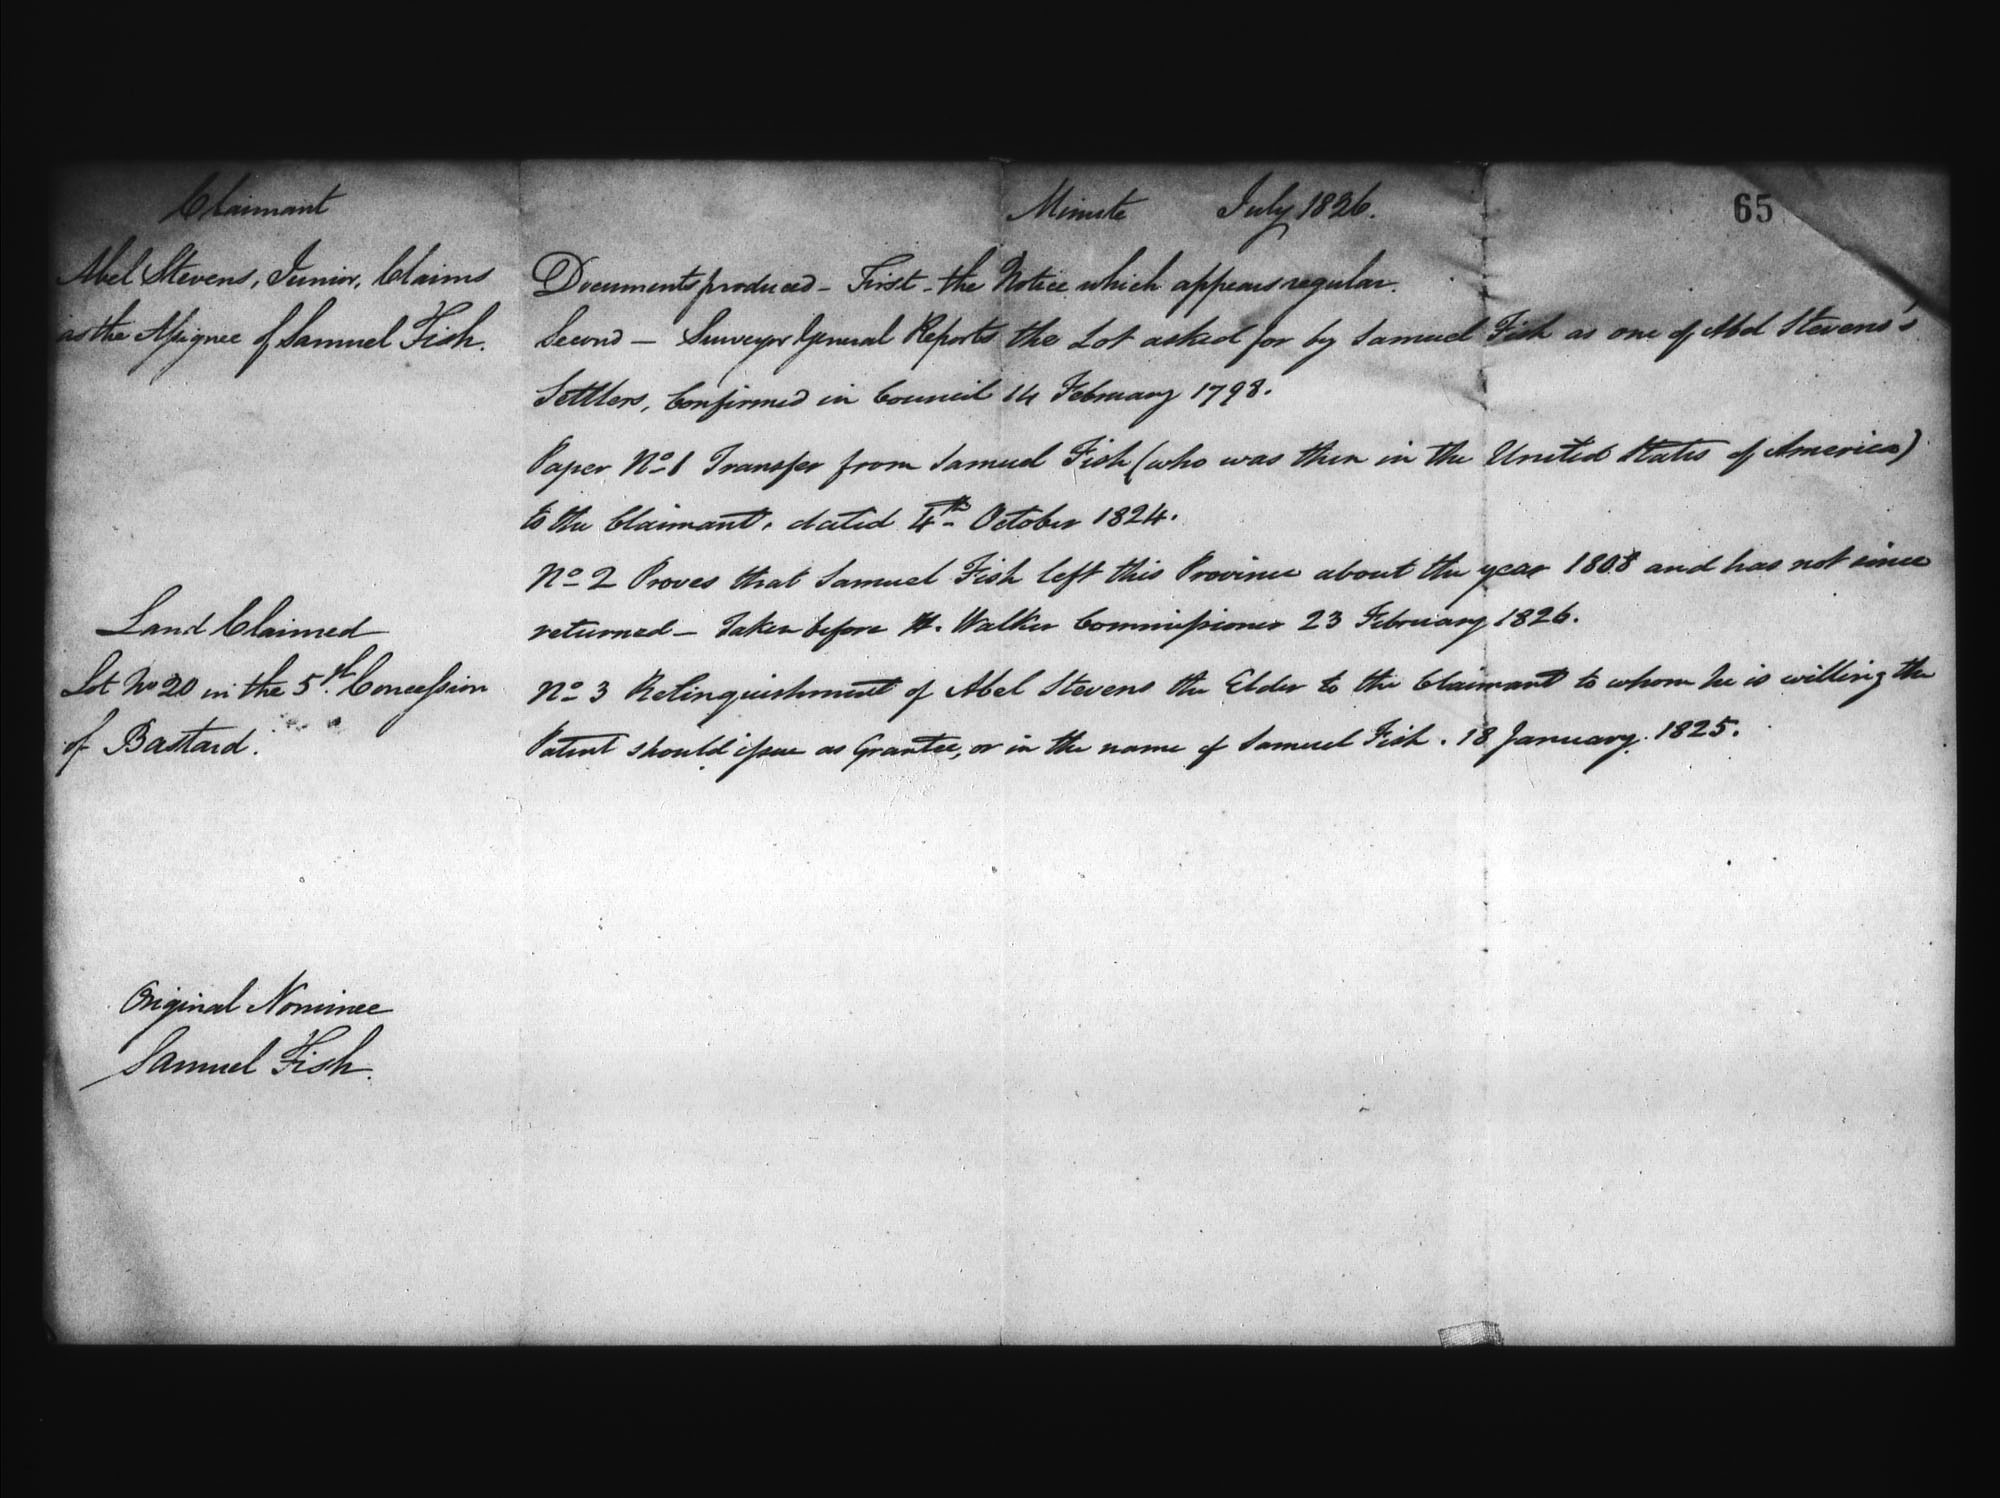 Claimant
Minute July 1826.
65
Abel Stevens, Junior, Claims
as the Assignee of Samuel Fish.
Documents produced – First – the Notice which appears regular.
Second – Surveyor General Reports the Lot asked for by Samuel Fish as one of Abel Stevens's
Settlers, Confirmed in Council 14 February 1798.
Paper No 1 Transfer from Samuel Fish (who was then in the United States of America)
to the Claimant, dated 4th October 1824.
No 2 Proves that Samuel Fish left this Province about the year 1808 and has not since
returned – Taken before H. Walker Commissioner 23 February 1826.
Land Claimed
Lot No 20 in the 5th Concession
of Bastard.
No 3 Relinquishment of Abel Stevens the Elder to the Claimant to whom he is willing the
Patent should issue as Grantee, or in the name of Samuel Fish. 18 January 1825.
Original Nominee
Samuel Fish.